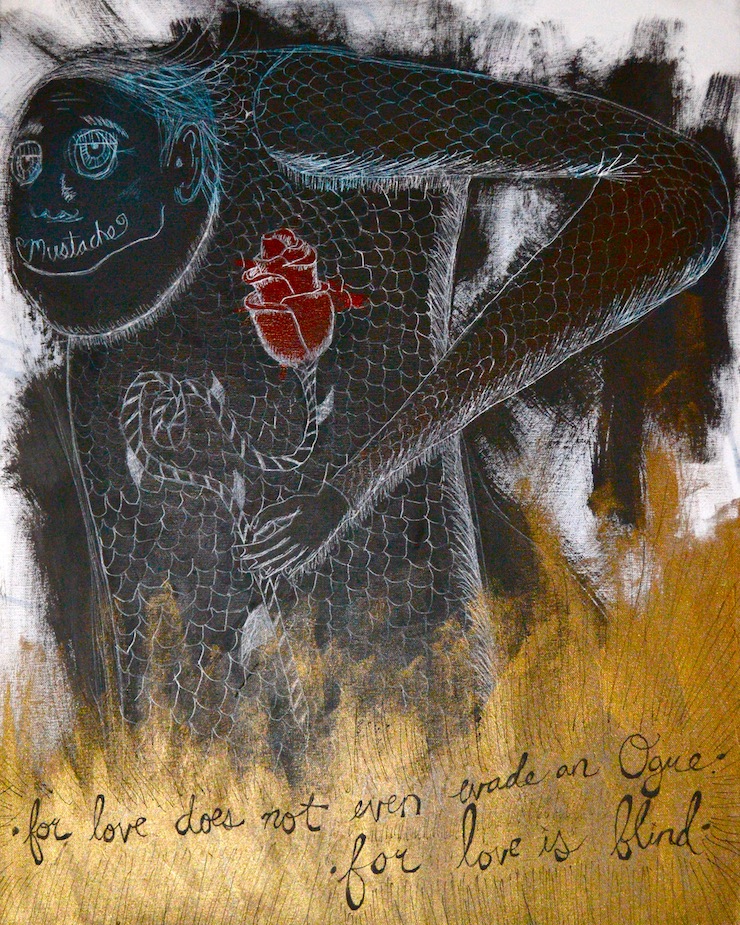 Mustache
·for love does not even evade an Ogre·
·for love is blind·